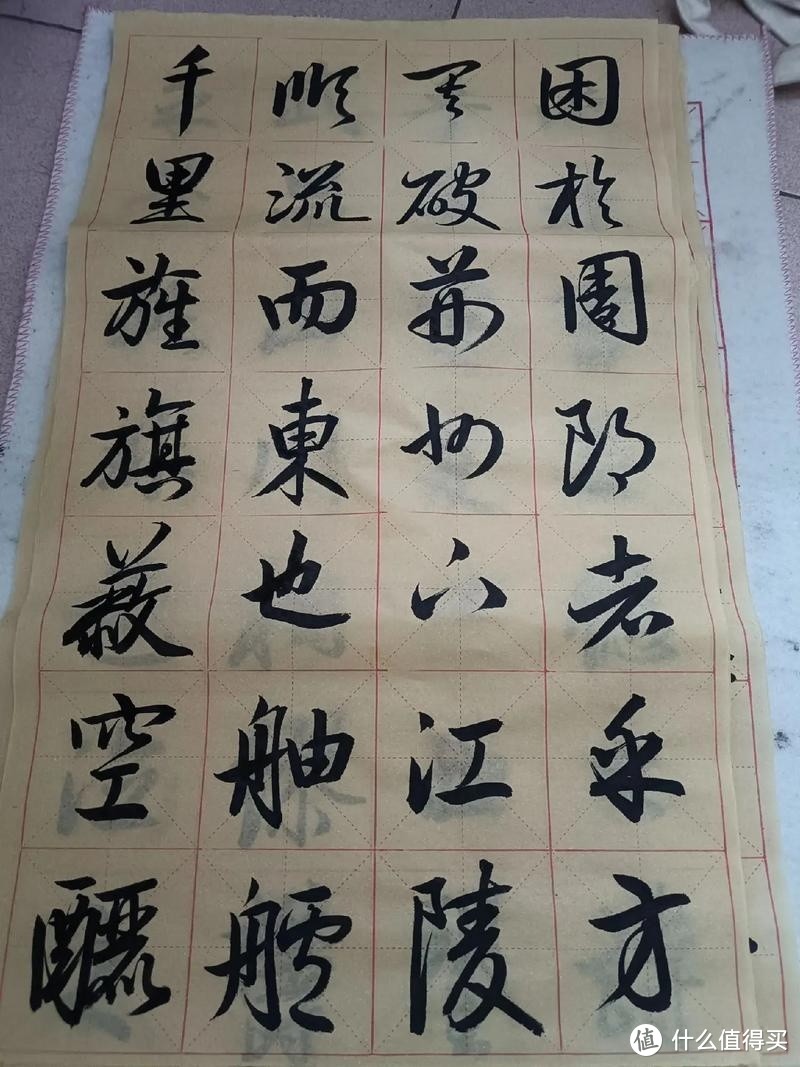 困於周郎者乎方
其破荆州下江陵
順流而東也舳艫
千里旌旗蔽空釃
值 什么值得买